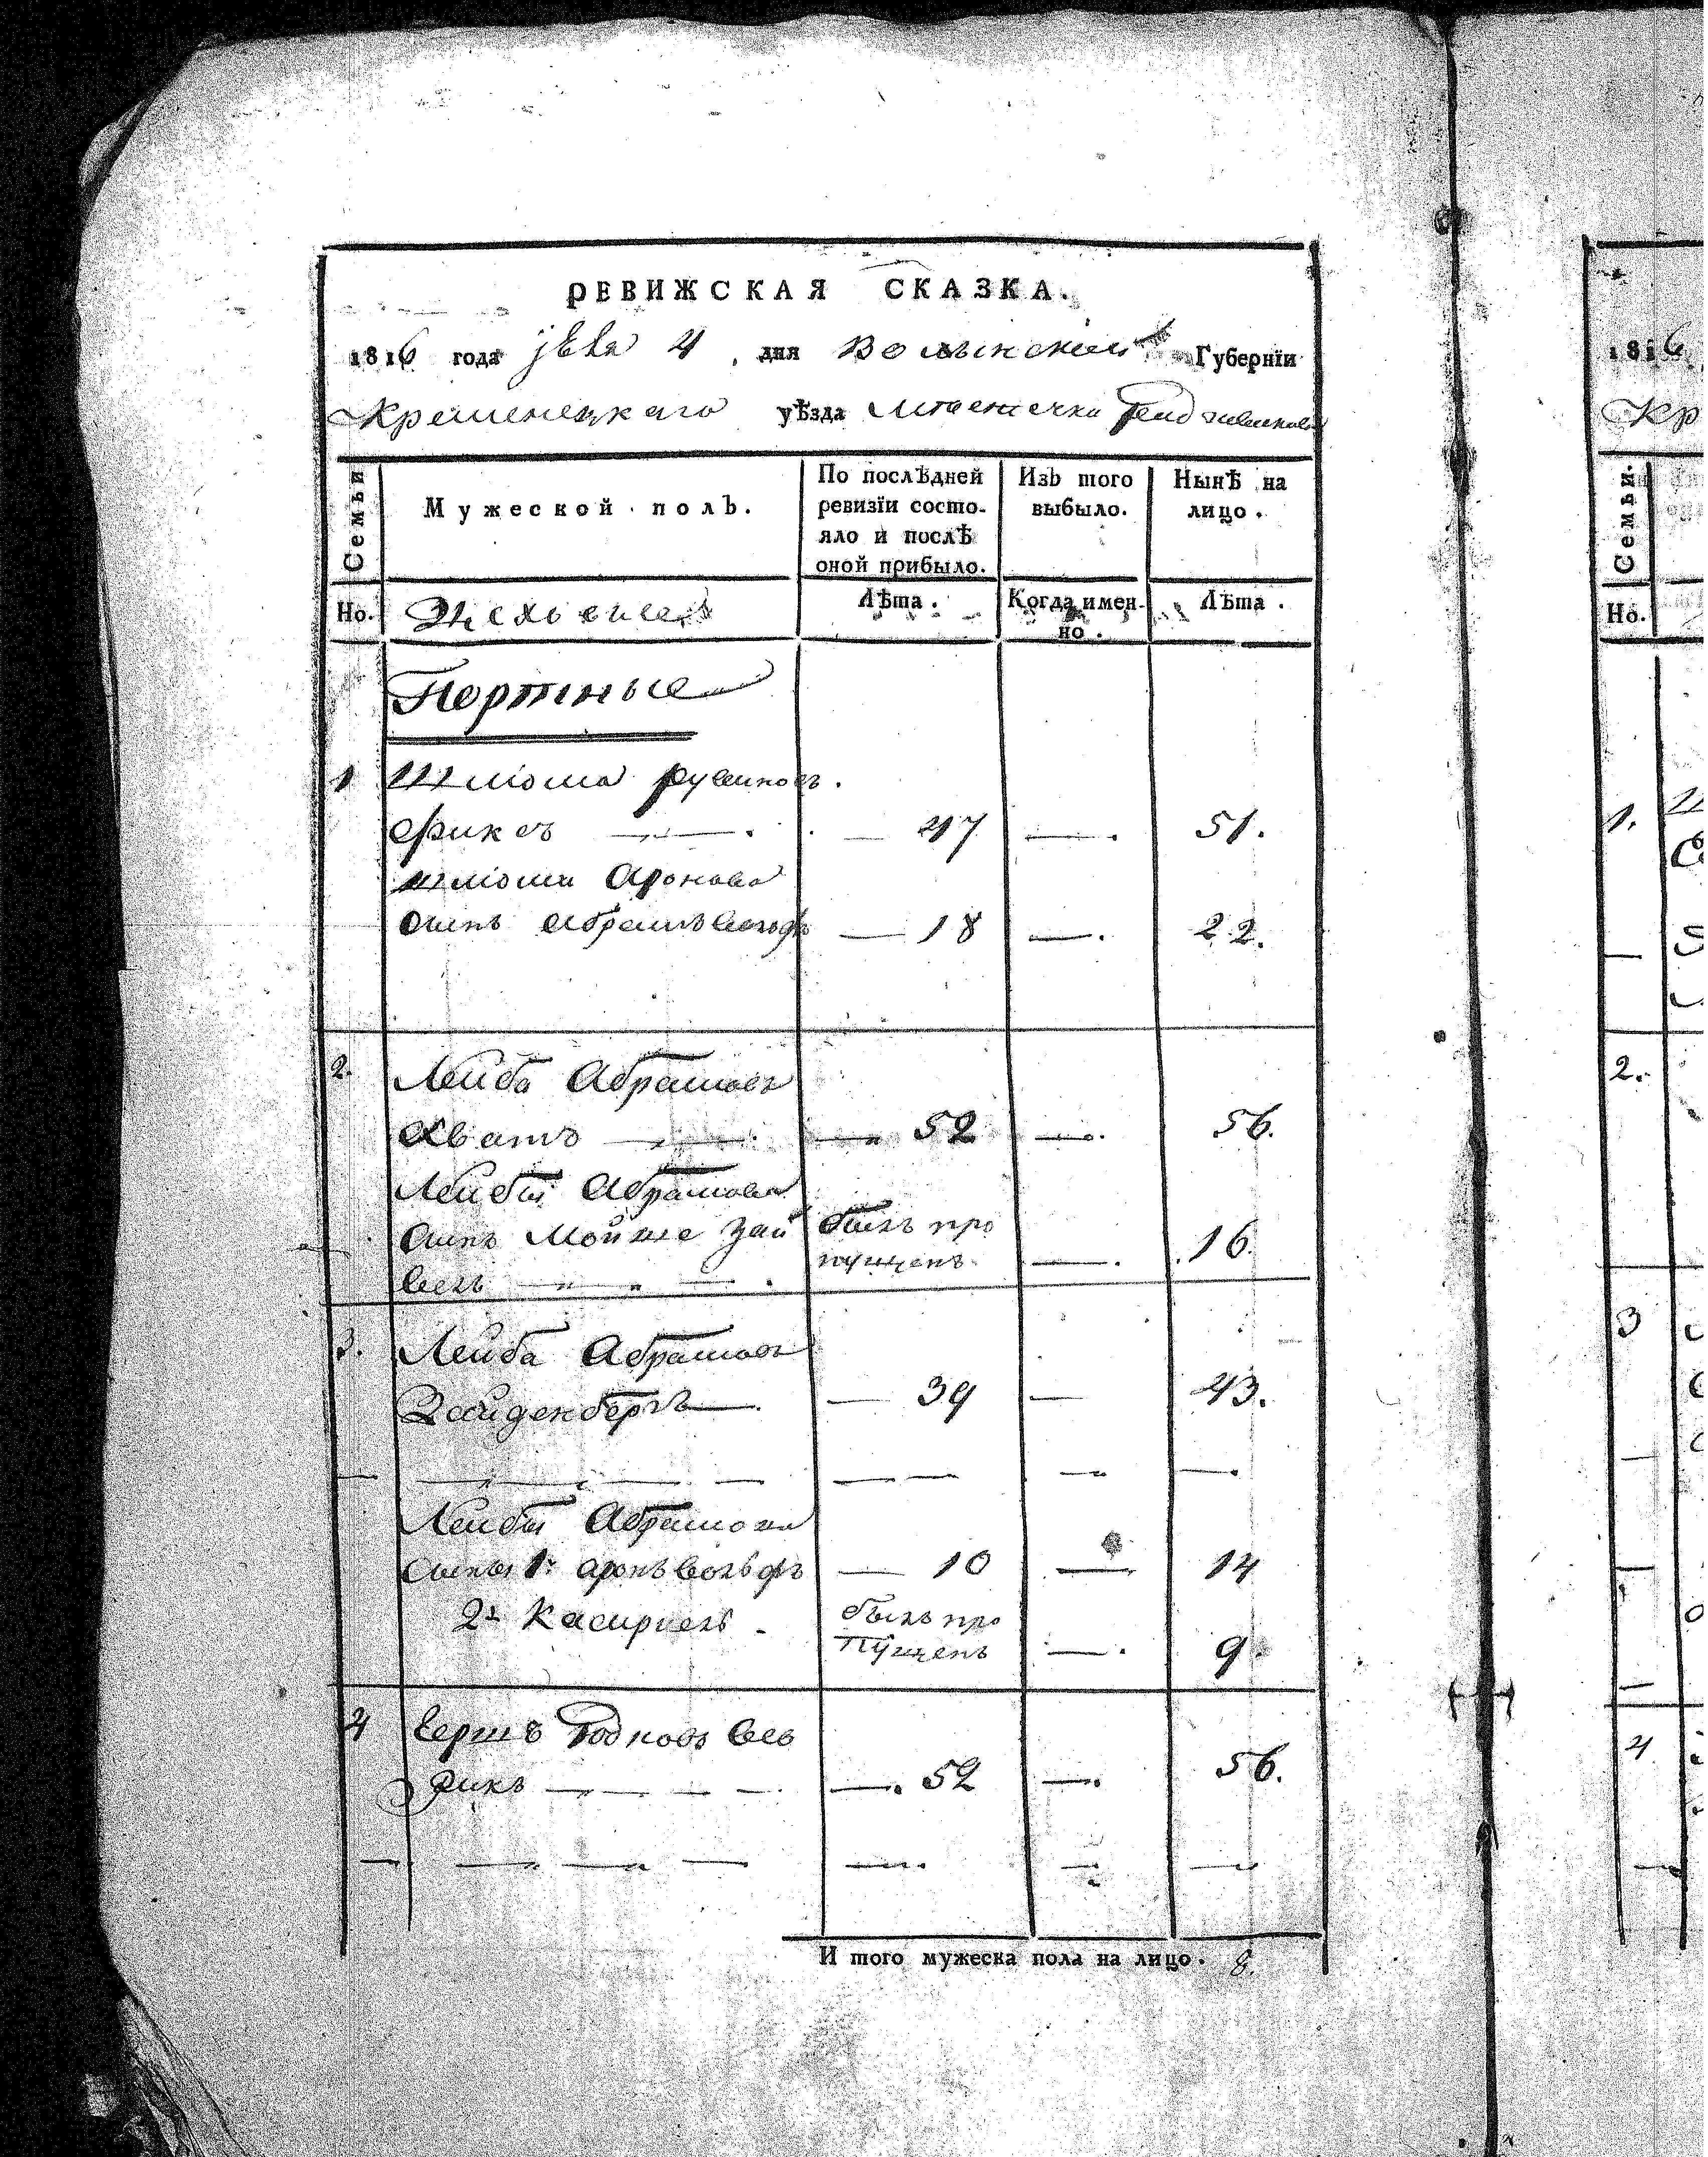 РЕВИЖСКАЯ СКАЗКА.
1816 года 4, дня Волынской Губернїи
Кременецкаго уѣзда местечка
Семьи
Мужеской полъ.
По послѣдней
ревизїи состо-
яло и послѣ
оной прибыло.
Изъ того
выбыло.
Нынѣ на
лицо.
Но.
Цеховые
Лѣта.
Когда имен-
но.
Лѣта.
Портные
1 Шліома
Фиксъ — 47 — 51.
Шліоми Аронова
сынъ Абрамъ Вольфъ — 18 — 22.
2. Лейба Абрамовъ
Хватъ — 52 — 56.
Лейбы Абрамова
сынъ Мойше Зай былъ про
велъ пущенъ — 16.
3. Лейба Абрамовъ
Зайденберъ — 39 — 43.
Лейбы Абрамова
сыны 1й Аронъ Вольфъ — 10 — 14
2й Касириель. былъ про
пущенъ — 9.
4 Гершъ
рикъ — 52 — 56.
И того мужеска пола на лицо. 8.
1816
Кр
Семьи.
Но.
1.
2.
3
4